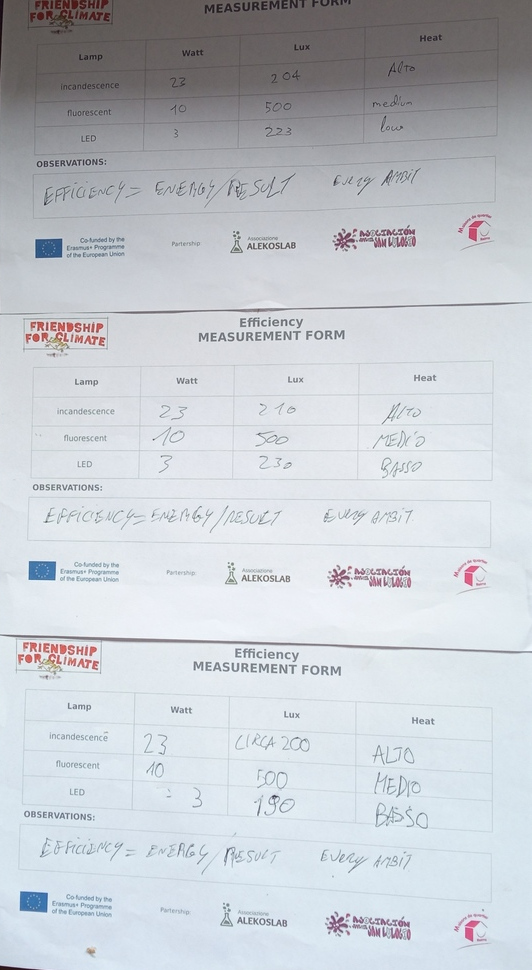 FRIENDSHIP
FOR CLIMATE
MEASUREMENT FORM
Lamp Watt Lux Heat
incandescence 23 204 Alto
fluorescent 10 500 medium
LED 3 223 low
OBSERVATIONS:
EFFICIENCY = ENERGY/RESULT EVERY AMBIT
Co-funded by the
Erasmus+ Programme
of the European Union
Partership:
Associazione
ALEKOSLAB
ASOCIACIÓN
FRIENDSHIP
FOR CLIMATE
Efficiency
MEASUREMENT FORM
Lamp Watt Lux Heat
incandescence 23 210 ALTO
fluorescent 10 500 MEDIO
LED 3 230 BASSO
OBSERVATIONS:
EFFICIENCY = ENERGY/RESULT EVERY AMBIT.
Co-funded by the
Erasmus+ Programme
of the European Union
Partership:
Associazione
ALEKOSLAB
ASOCIACIÓN
FRIENDSHIP
FOR CLIMATE
Efficiency
MEASUREMENT FORM
Lamp Watt Lux Heat
incandescence 23 CIRCA 200 ALTO
fluorescent 10 500 MEDIO
LED 3 190 BASSO
OBSERVATIONS:
EFFICIENCY = ENERGY/RESULT EVERY AMBIT
Co-funded by the
Erasmus+ Programme
of the European Union
Partership:
Associazione
ALEKOSLAB
ASOCIACIÓN